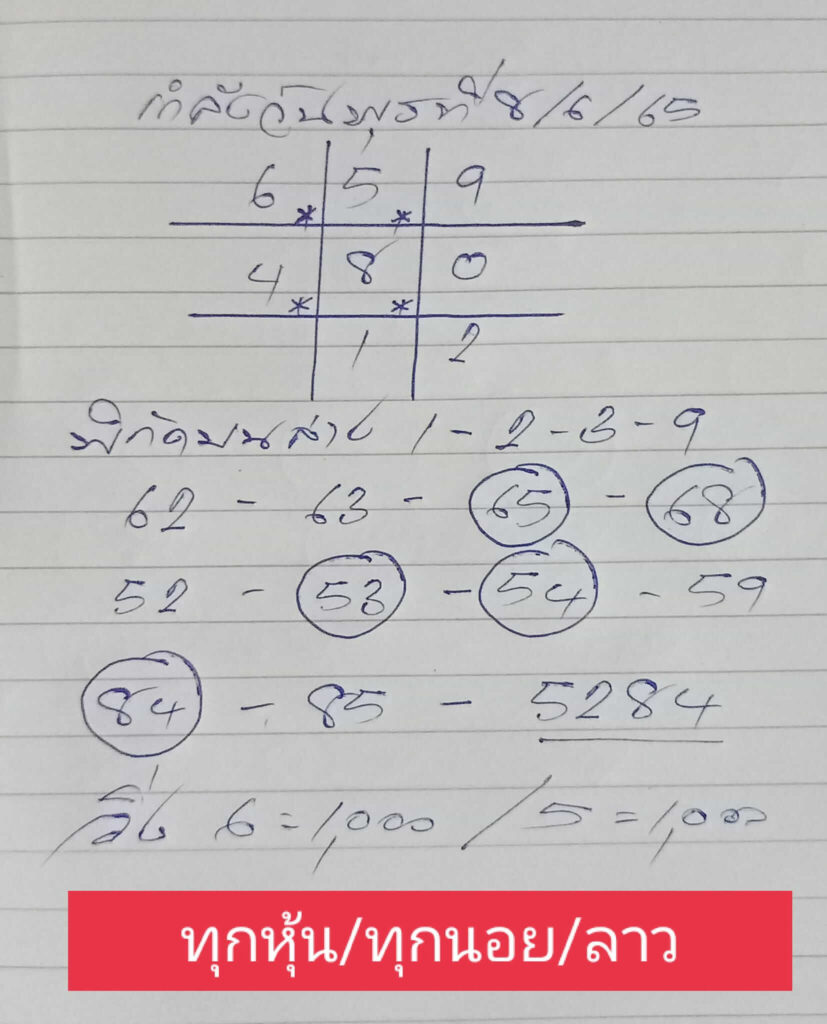 กำลังวันพุธที่ 8/6/65
6 * 5 * 9
4 * 8 * 0
1 2
พิกัดบนล่าง 1-2-3-9
62 - 63 - 65 - 68
52 - 53 - 54 - 59
84 - 85 - 5284
วิ่ง 6=1,000 / 5=1,000
ทุกหุ้น/ทุกนอย/ลาว